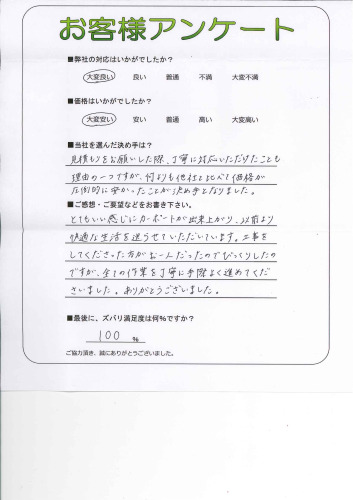 お客様アンケート
■弊社の対応はいかがでしたか?
大変良い 良い 普通 不満 大変不満
■価格はいかがでしたか?
大変安い 安い 普通 高い 大変高い
■当社を選んだ決め手は?
見積もりをお願いした際、丁寧に対応いただけたことも
理由の一つですが、何よりも他社と比べて価格が
圧倒的に安かったことが決め手となりました。
■ご感想・ご要望などをお書き下さい。
とてもいい感じにカーポートが出来上がり、以前より
快適な生活を送らせていただいています。工事を
してくださった方がお一人だったのでびっくりしたの
ですが、全ての作業を丁寧に手際よく進めてくだ
さいました。ありがとうございました。
■最後に、ズバリ満足度は何%ですか?
100 %
ご協力頂き、誠にありがとうございました。